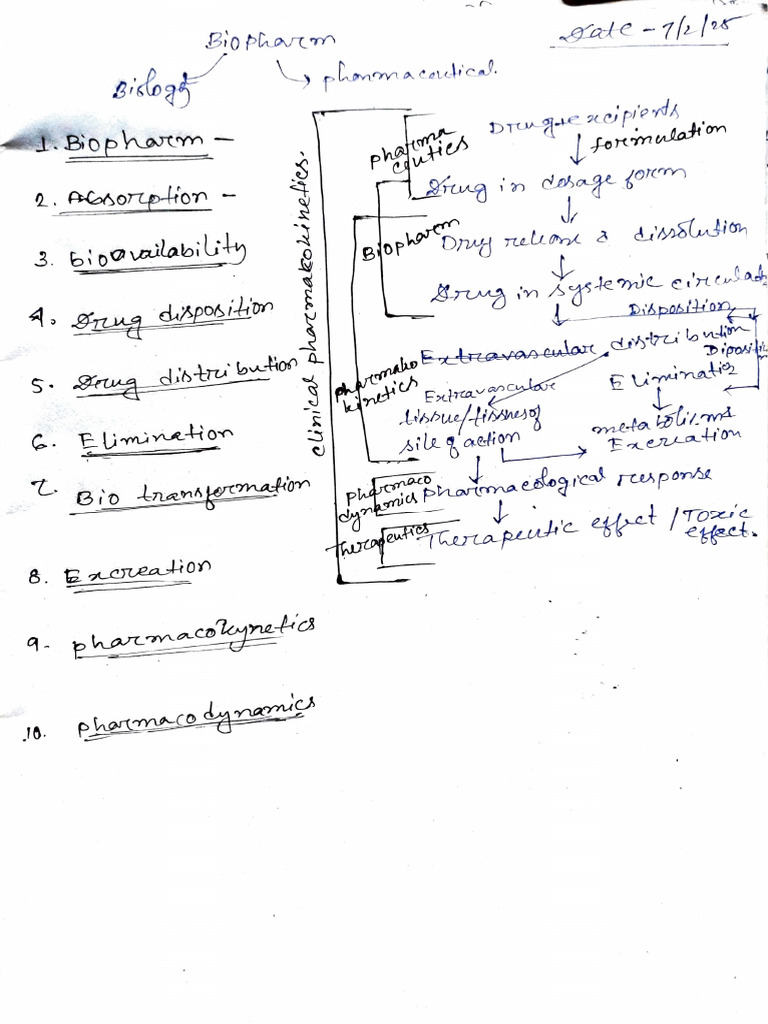 Date - 7/2/25
Biopharm
Biology
pharmaceutical.
1. Biopharm -
2. Absorption -
3. bioavailability
4. Drug disposition
5. Drug distribution
6. Elimination
7. Bio transformation
8. Excreation
9. pharmacokynetics
10. pharmacodynamics
clinical pharmakokinetics.
pharma
ceutics
Drug+excipients
formulation
Drug in dosage form
Biopharm
Drug release & dissolution
Drug in systemic circulat
Disposition
Extravascular distribution
Dipositi
pharmako
kinetics
Extravascular
Elimination
tissue/tissues of
site of action
metabolisms
Excreation
pharmaco
dynamics
pharmacological response
Therapeutics
Therapeutic effect / Toxic
effect.